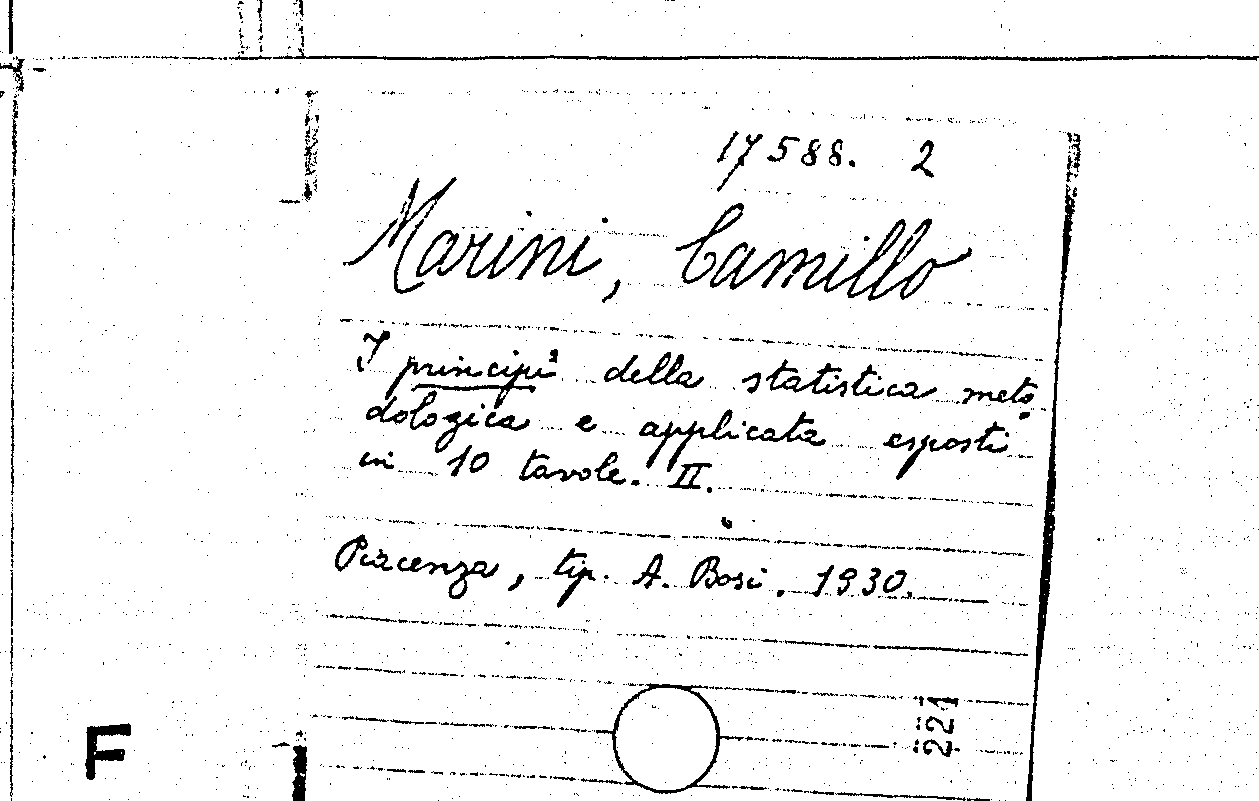 17588. 2
Marini, Camillo
I principi della statistica meto
dologica e applicata esposti
in 10 tavole. II.
Piacenza, tip. A. Bosi. 1930.
221
F